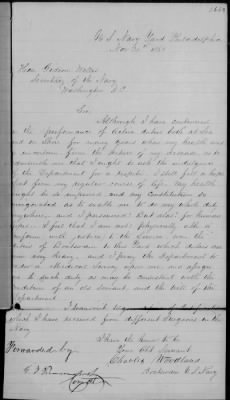 U S Navy Yard Philadelphia
Nov
Hon Gideon Welles
Secretary of the Navy
Washington D.C.
Sir
Although I have continued
in the performance of Active duties both at Sea
and on Shore for many years when my health and
admonish me that I ought to ask the indulgence
of the Department for a respite. I still felt a hope
that from my regular course of life my health
might be so improved and my Constitution so
invigorated as to enable me to do my whole duty
anywhere and I persevered! But alas! for human
hopes. I find that I am not physically able to
perform with Justice to the
duties of Boatswain to this Yard which duties are
now very heavy, and I pray the Department to
order a Medical Survey upon me and assign
me to such duty as may be consistent with the
of an old servant, and the
Department.
I transmit
which I have received from different Surgeons in the
Navy
I have the honor to be
Your Obt Servant
Charles Woodland
Boatswain U.S. Navy
Forwarded by